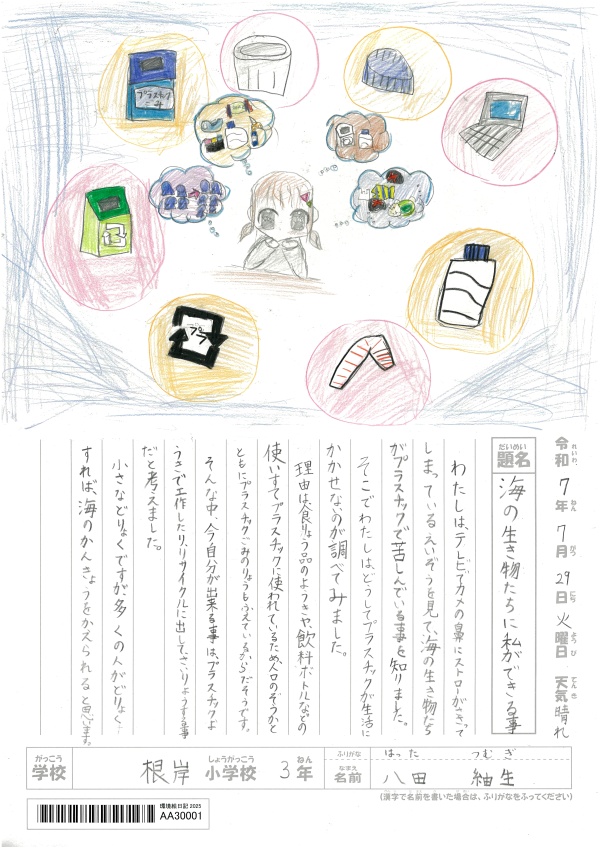 プラスチック
ごみ
プラ
令和7年7月29日火曜日 天気 晴れ
れいわ ねん がつ にち ようび てんき
だいめい
題名 海の生き物たちに私ができる事
わたしは、テレビでカメの鼻にストローがささって
しまっているえいぞうを見て、海の生き物たち
がプラスチックで苦しんでいる事を知りました。
そこでわたしは、どうしてプラスチックが生活に
かかせないのか調べてみました。
理由は、食りょう品のようきや、飲料ボトルなどの
使いすてプラスチックに使われているため、人口のぞうかと
ともにプラスチックごみのりょうもふえているからだそうです。
そんな中、今、自分が出来る事は、プラスチックよ
うきで工作したり、リサイクルに出して、さいりようする事
だと考えました。
小さなどりょくですが、多くの人がどりょく
すれば、海のかんきょうをかえられると思います。
がっこう しょうがっこう ねん
学校 根岸 小学校 3年
ふりがな はった つむぎ
なまえ
名前 八田 紬生
(漢字で名前を書いた場合は、ふりがなをふってください)
環境絵日記 2025
AA30001